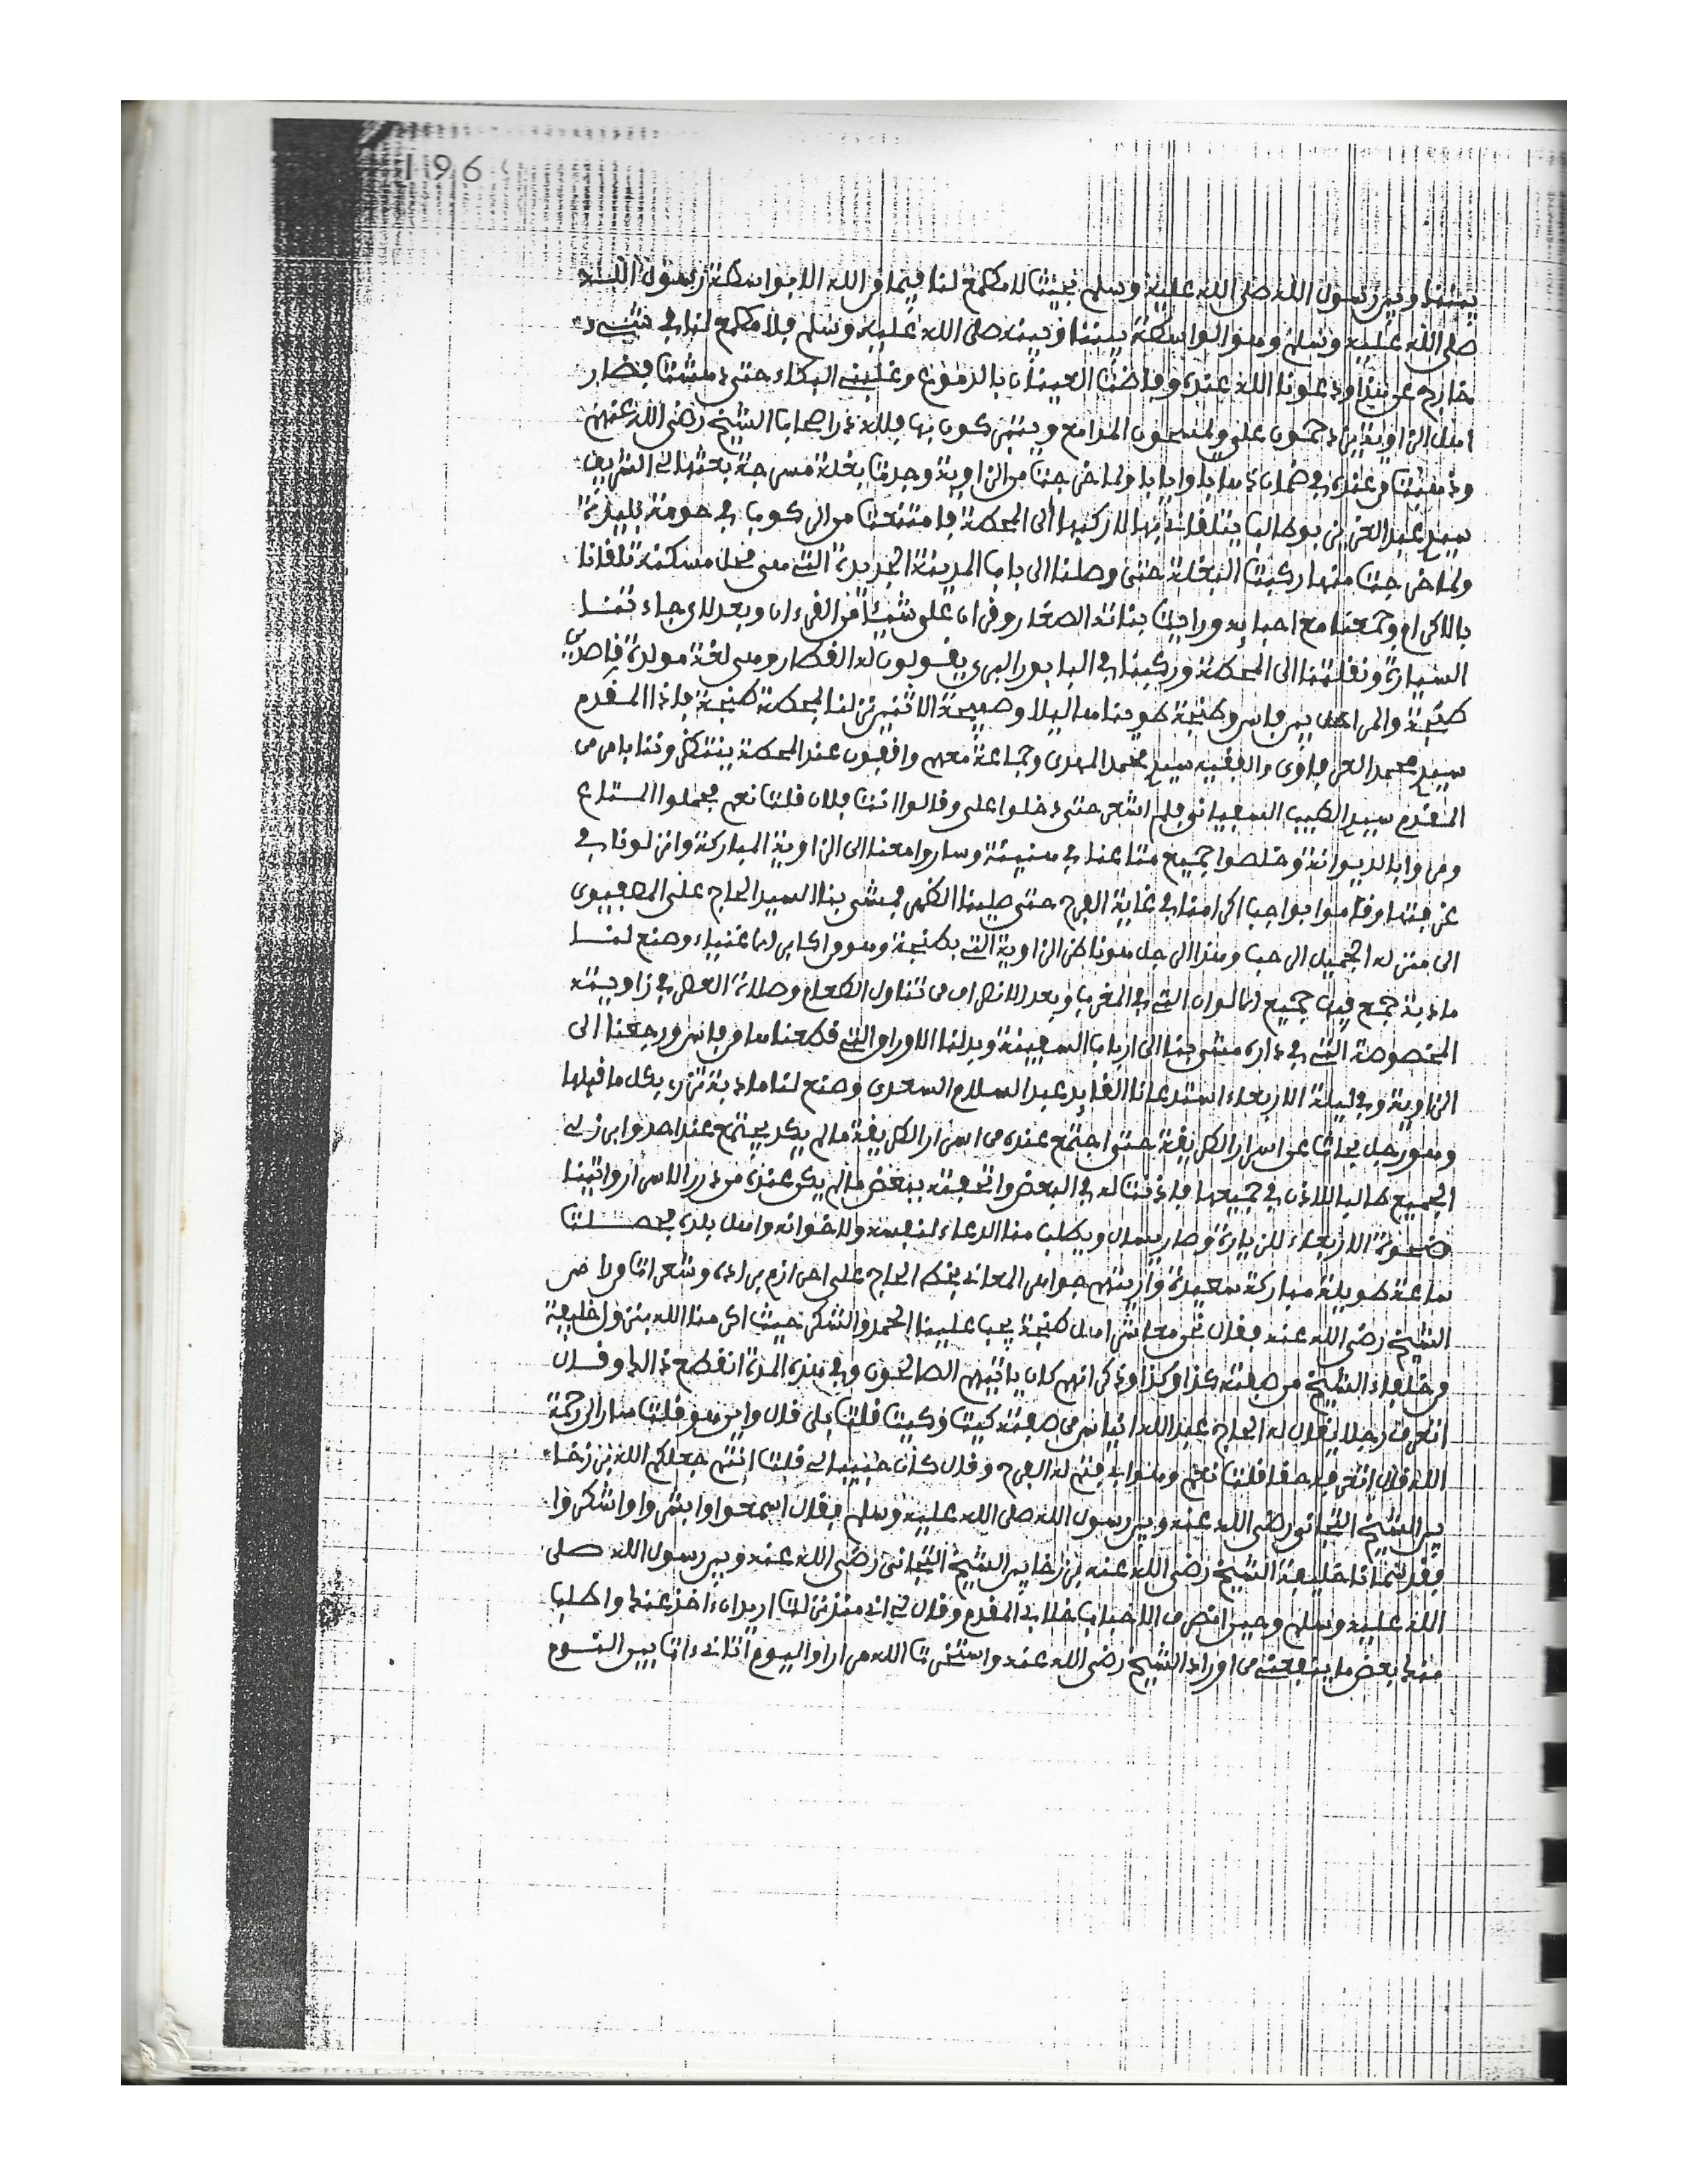 196
بيننا وبين رسول الله صلى الله عليه وسلم بحيث لا مطمع لنا فيما من الله الا بواسطة رسول الله
صلى الله عليه وسلم وهو الواسطة بيننا وبينه صلى الله عليه وسلم فلا مطمع لنا في شيء
خارج عن هذا ودعونا الله عنده وفاضت العينان بالدموع وغلبني البكاء حتى دهشت فصار
اهل الزاوية يزدحمون علي ويمسحون المدامع ويتبركون بها فلله در اصحاب الشيخ رضي الله عنهم
وذهبت من عنده في ضمان ذهابا وايابا ولما خرجت من الزاوية وجدت بغلة مسرجة بعثها لي الشريف
سيدي عبد العزيز بوطالب يتلقاني بها لاركبها الى المحطة فامتنعت من الركوب في حومة بليدة
ولما خرجت منها ركبت البغلة حتى وصلنا الى باب المدينة الجديدة التي هي محل مسكنه تلقانا
بالاكرام وجمعنا مع احبابه ورأيت بناته الصغار وقران علي شيئا من القرءان وبعد ذلك جاءتنا
السيارة ونقلتنا الى المحطة وركبنا في البابور البري يقولون له القطار وهي لغة مولدة قاصدين
طنجة والمراحل بين فاس وطنجة طويناها ليلا وصبيحة الاثنين نزلنا بمحطة طنجة فاذا المقدم
سيدي محمد العرفاوي والفقيه سيدي محمد المهدي وجماعة معهم واقفون عند المحطة ينتظروننا بامر من
المقدم سيدي الطيب السفياني فلم اشعر حتى دخلوا علي وقالوا انت فلان قلت نعم فحملوا المتاع
ومروا بالديوانة وخلصوا جميع متاعنا في هنيئة وساروا معنا الى الزاوية المباركة وانزلونا في
غرفتها وقاموا بواجب اكرامنا في غاية الفرح حتى صلينا الظهر فمشى بنا السيد الحاج علي المصفيوي
الى منزله الجميل الرحب وهذا الرجل هو ناظر الزاوية التي بطنجة وهو من اكابر الاغنياء وصنع لنا
مادبة جمع فيها جميع الالوان التي في المغرب وبعد الانصراف من تناول الطعام وصلاة العصر في زاويته
المخصوصة التي في داره مشى بنا الى ارباب السفينة وبدلنا الاوراق التي قطعناها من فاس ورجعنا الى
الزاوية وفي ليلة الاربعاء استدعانا القايد عبد السلام السعدي وصنع لنا مادبة تزري بكل ما قبلها
وهو رجل بحاث عن اسرار الطريقة حتى اجتمع عنده من اسرار الطريقة ما لم يكد يجتمع عند احد وابرز لي
الجميع طالبا الاذن في جميعها فاذنت له في البعض واتحفته ببعض ما لم يكن عنده من درر الاسرار واتينا
ضحوة الاربعاء للزيارة وصار يسال ويطلب منا الدعاء لنفسه ولاخوانه واهل بلده فحصلت
ساعة طويلة مباركة سعيدة واريتهم جواهر المعاني بخط الحاج علي احرازم برادة وشعرات من راس
الشيخ رضي الله عنه فقال نحن معاشر اهل طنجة يجب علينا الحمد والشكر حيث اكرمنا الله بنزول خليفة
من خلفاء الشيخ من صفته كذا وكذا وذكر انهم كان ياتيهم الصالحون وفي هذه المدة انقطع ذلك وقال
اتعرف رجلا يقال له الحاج عبد الله انياس من صفته كيت وكيت قلت بلى قال واين هو قلت سار الى رحمة
الله قال اتعرفه حقا قلت نعم وهو الذي فتح له الفرح وقال كان حبيبا لي قلت انتم جعلكم الله برزخا
بين الشيخ التجاني رضي الله عنه وبين رسول الله صلى الله عليه وسلم فقال اسمعوا وابشروا واشكروا
فقد اتانا خليفة الشيخ رضي الله عنه برزخا بين الشيخ التجاني رضي الله عنه وبين رسول الله صلى
الله عليه وسلم وحين انصرف الاحباب خلا بي المقدم وقال لي اني منذ نزلت اريد ان ءاخذ عنك واطلب
منك بعض ما ينفعني من اوراد الشيخ رضي الله عنه واستخرت الله مرارا واليوم اتاني ءات بين النوم